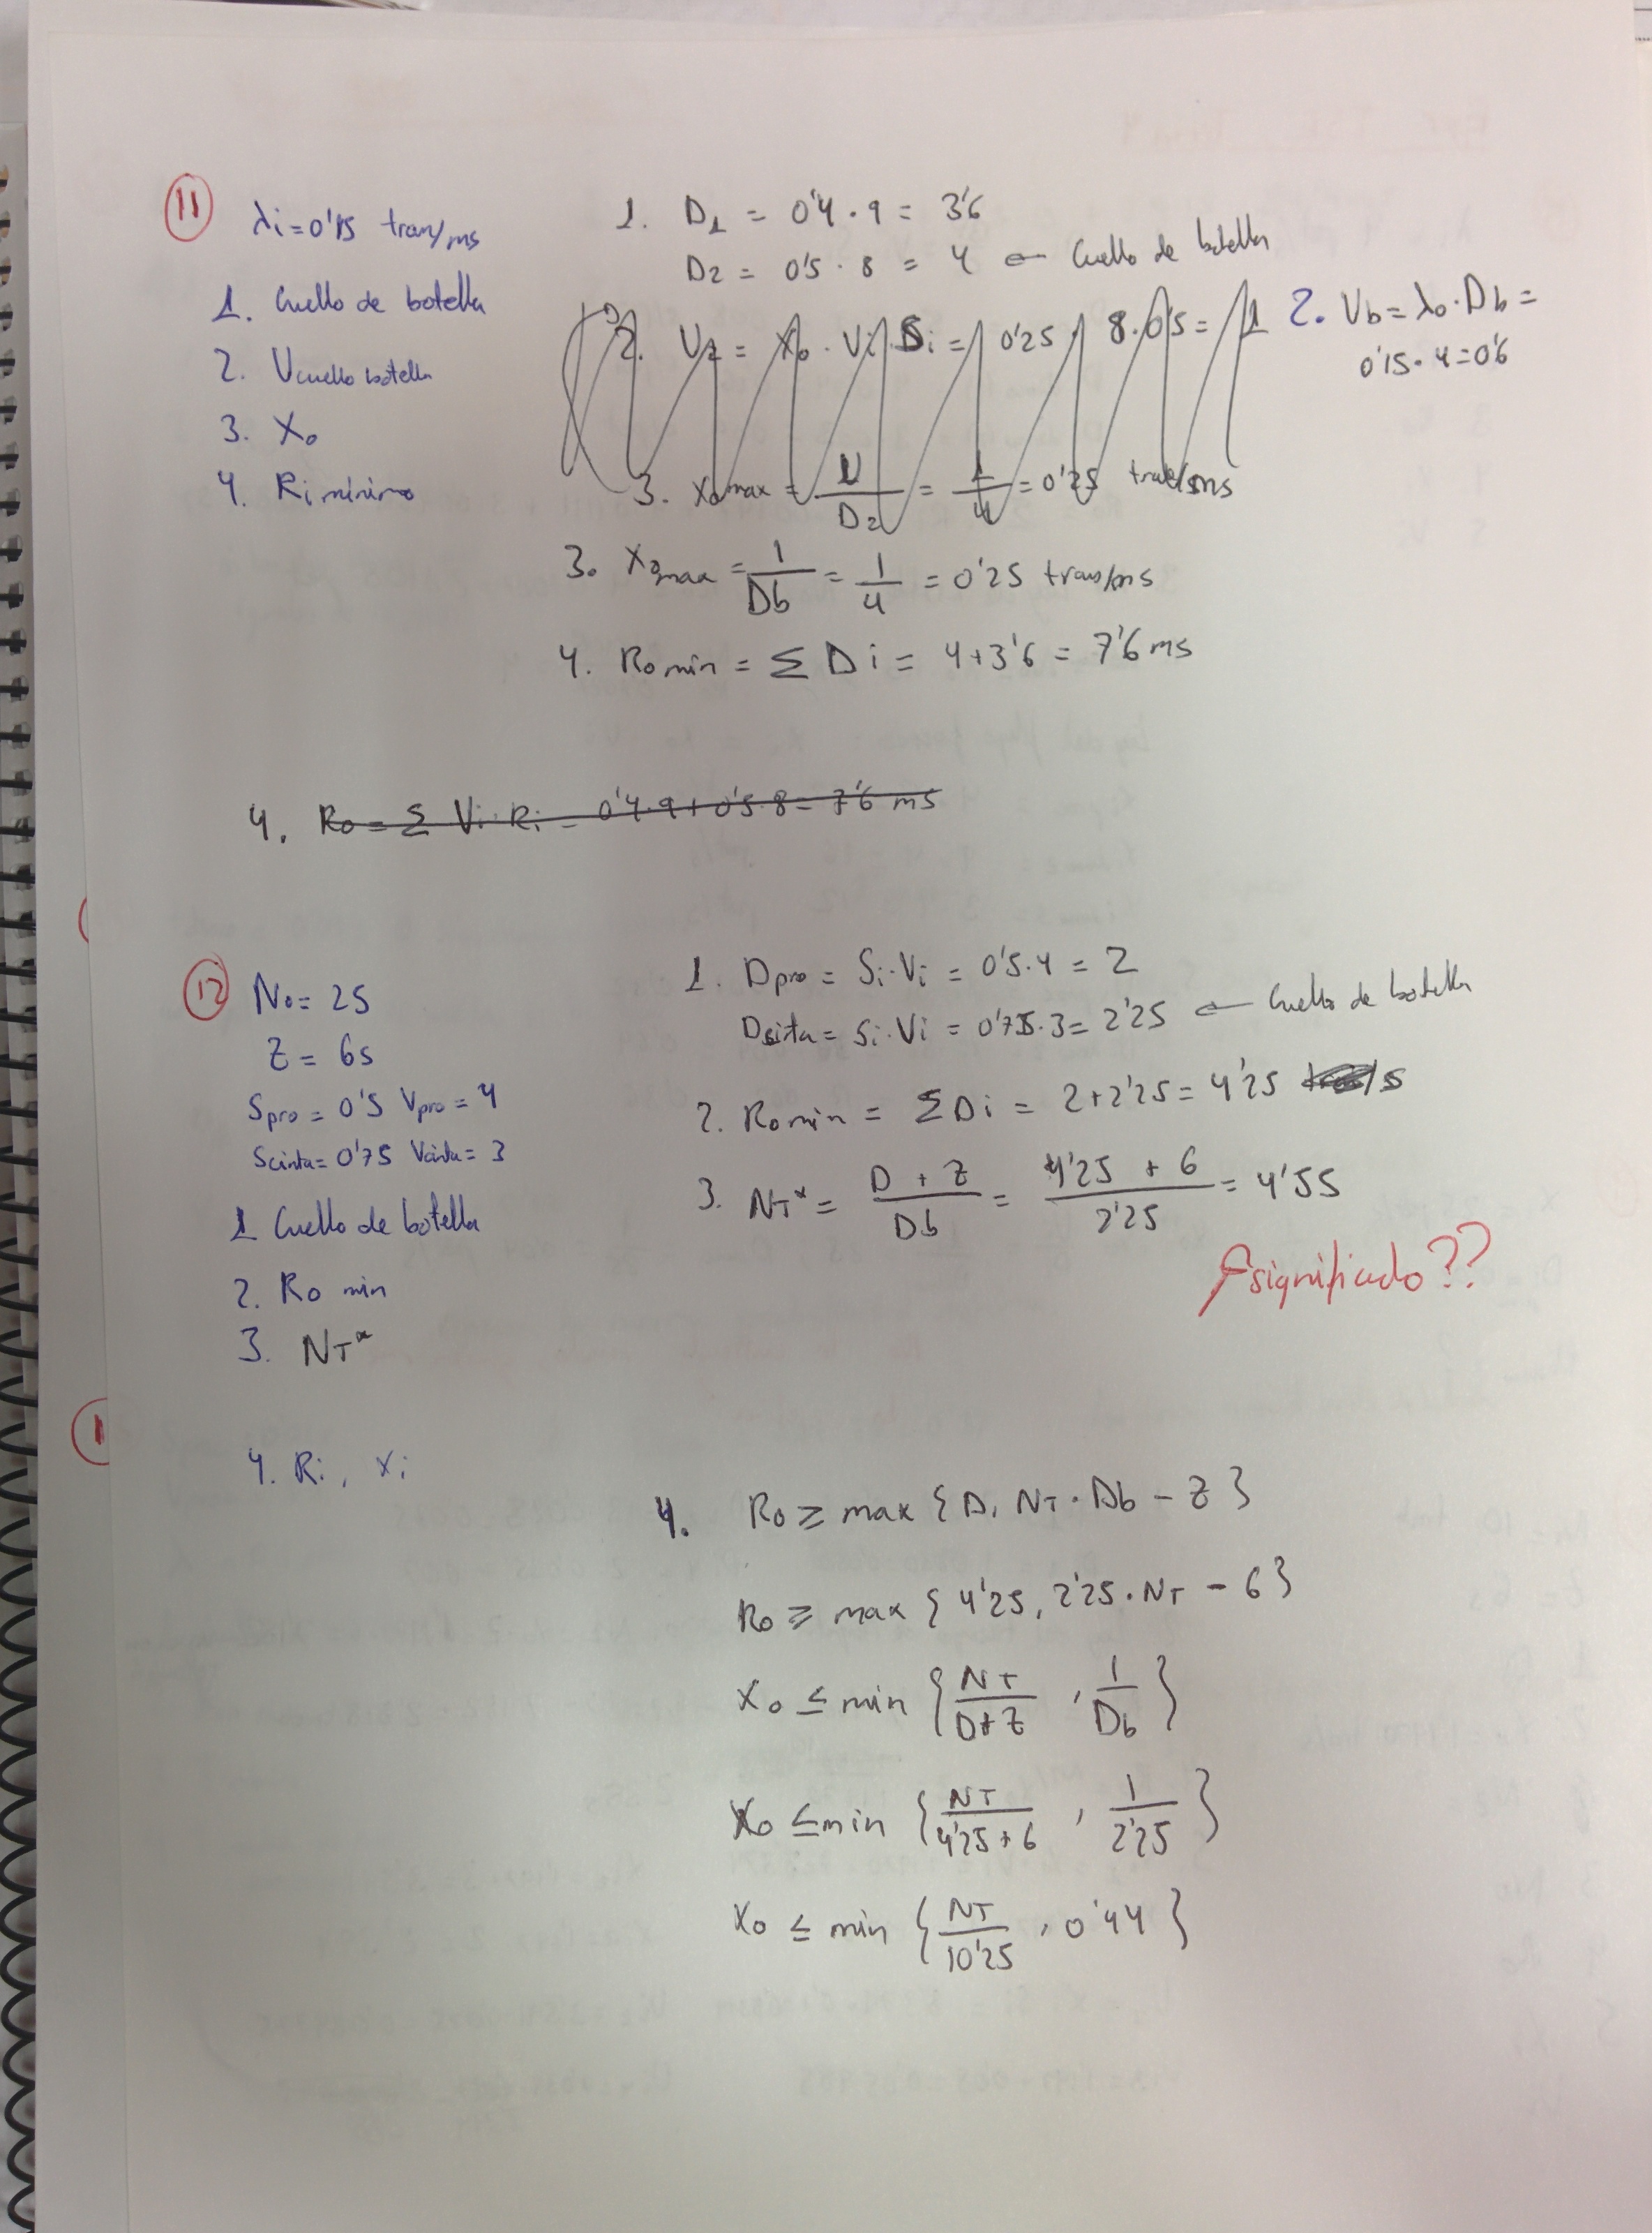 11
λi=0'15 tran/ms
1. Cuello de botella
2. Ucuello botella
3. X₀
4. Ri mínimo
1. D₁ = 0'4 · 9 = 3'6
D₂ = 0'5 · 8 = 4 ← Cuello de botella
2. U₂ = X₀ · Vi · Si = 0'25 · 8 · 0'5 = 1
2. Ub = λ₀ · Db =
0'15 · 4 = 0'6
3. X₀max = 1/D₂ = 1/4 = 0'25 tran/ms
3. X₀max = 1/Db = 1/4 = 0'25 tran/ms
4. R₀ min = Σ Di = 4+3'6 = 7'6 ms
4. R₀ = Σ Vi · Ri = 0'4·9+0'5·8 = 7'6 ms
12
N₀ = 25
Z = 6s
Spro = 0'5 Vpro = 4
Scinta = 0'75 Vcinta = 3
1 Cuello de botella
2. R₀ min
3. NT*
4. Ri, Xi
1. Dpro = Si·Vi = 0'5·4 = 2
Dcinta = Si·Vi = 0'75·3 = 2'25 ← Cuello de botella
2. R₀ min = ΣDi = 2+2'25 = 4'25 s
3. NT* = D + Z / Db = 4'25 + 6 / 2'25 = 4'55
significado??
4. R₀ ≥ max {D, NT · Db - Z}
R₀ ≥ max {4'25, 2'25·NT - 6}
X₀ ≤ min {NT/D+Z, 1/Db}
X₀ ≤ min {NT/4'25+6, 1/2'25}
X₀ ≤ min {NT/10'25, 0'44}